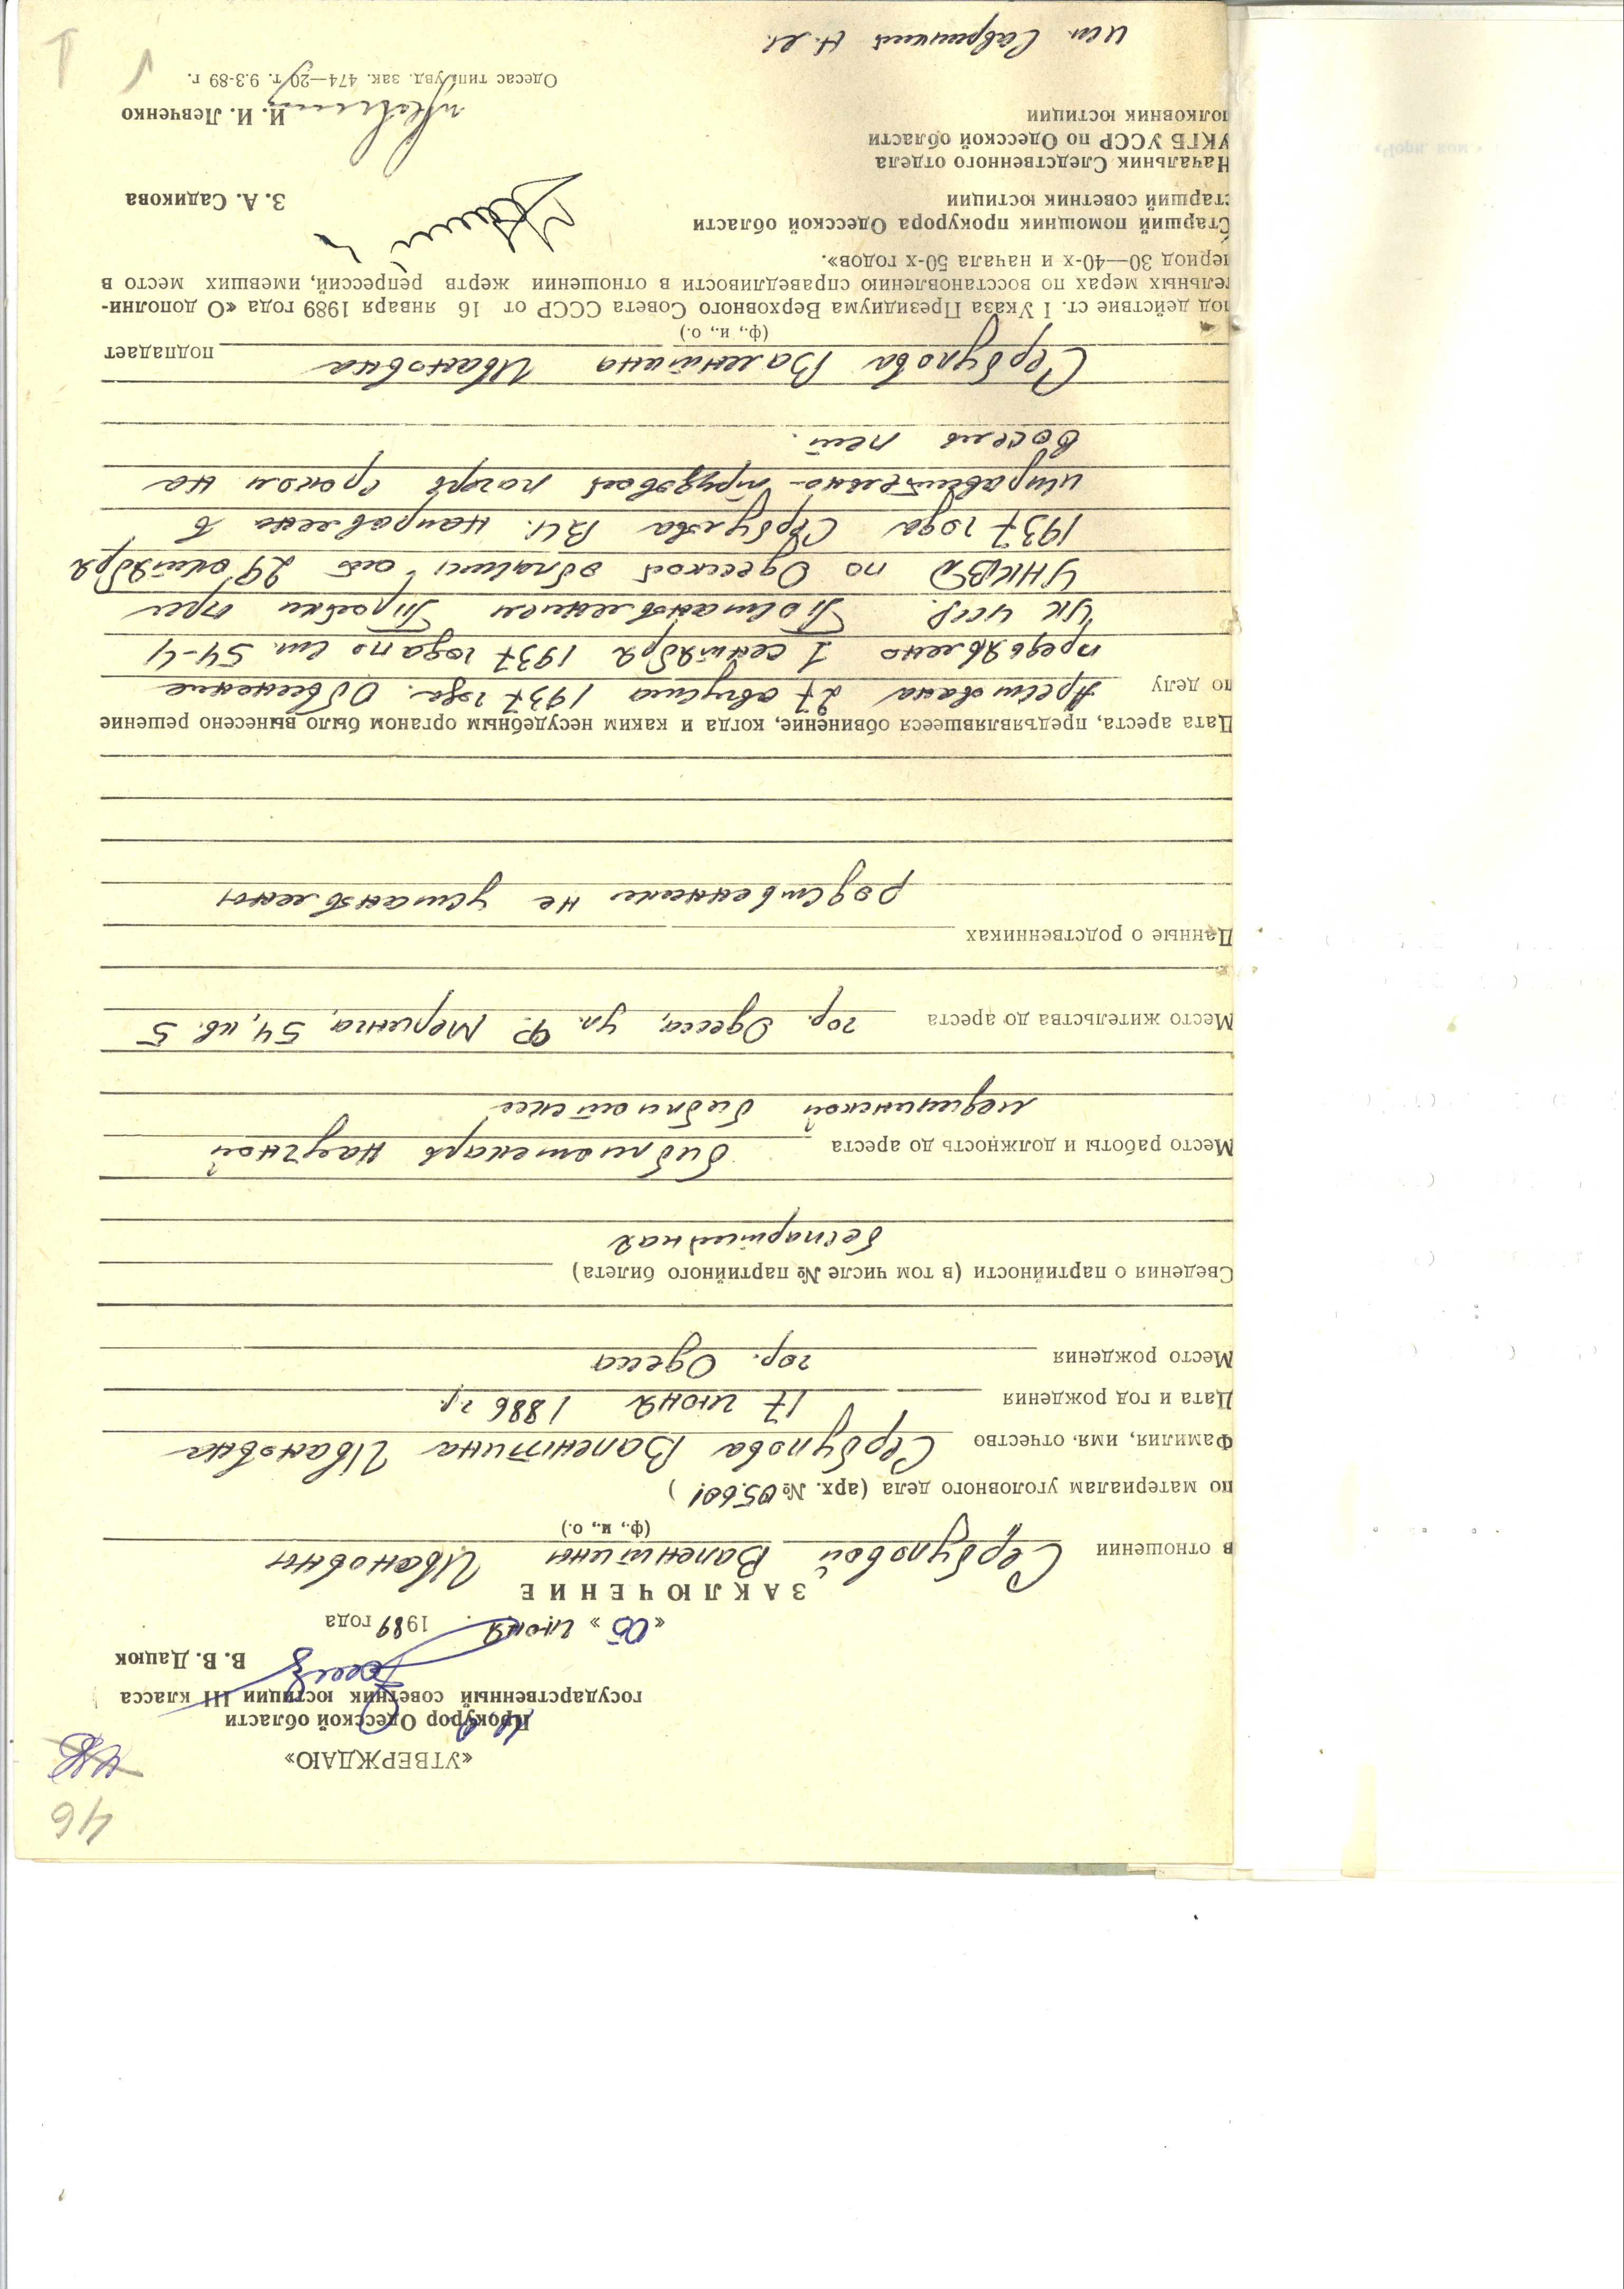 46
«УТВЕРЖДАЮ»
Прокурор Одесской области
государственный советник юстиции III класса
В. В. Дацюк
« 05 » июня 1989 года
ЗАКЛЮЧЕНИЕ
в отношении Сербуловой Валентины Ивановны
(ф., и., о.)
по материалам уголовного дела (арх. № 05601 )
Фамилия, имя, отчество Сербулова Валентина Ивановна
Дата и год рождения 17 июня 1886 г.р.
Место рождения гор. Одесса
Сведения о партийности (в том числе № партийного билета)
беспартийная
Место работы и должность до ареста библиотекарь научной
медицинской библиотеки
Место жительства до ареста гор. Одесса, ул. Ф. Меринга, 54, кв. 5
Данные о родственниках
родственники не установлены
Дата ареста, предъявлявшееся обвинение, когда и каким несудебным органом было вынесено решение
по делу Арестована 27 августа 1937 года. Обвинение
предъявлено 1 сентября 1937 года по ст. 54-4
УК УССР. Постановлением Тройки при
УНКВД по Одесской области от 29 октября
1937 года Сербулова В.И. направлена в
исправительно-трудовой лагерь сроком на
восемь лет.
Сербулова Валентина Ивановна подпадает
(ф., и., о.)
под действие ст. 1 Указа Президиума Верховного Совета СССР от 16 января 1989 года «О дополни-
тельных мерах по восстановлению справедливости в отношении жертв репрессий, имевших место в
период 30—40-х и начала 50-х годов».
Старший помощник прокурора Одесской области
старший советник юстиции З. А. Садикова
Начальник Следственного отдела
УКГБ УССР по Одесской области
полковник юстиции И. И. Левченко
Одесас тип. увд. зак. 474—20 т. 9.3-89 г.
исп.